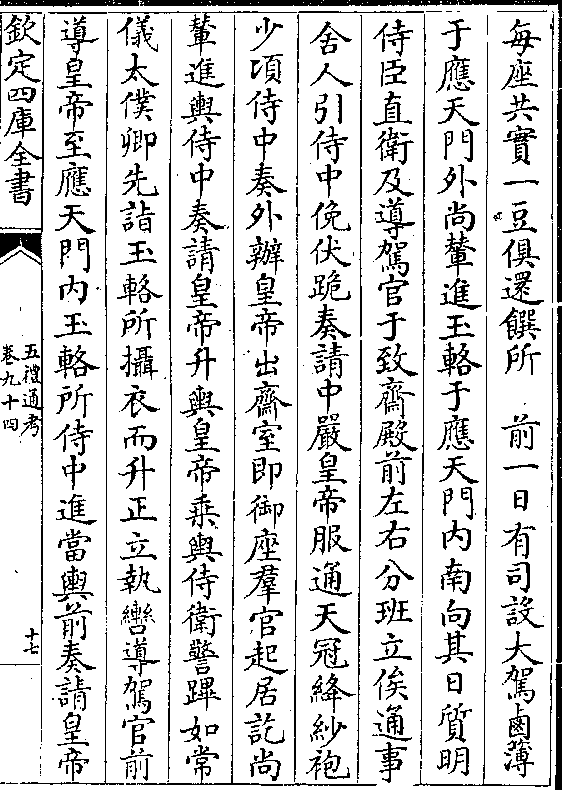 每座共實一豆俱還饌所　前一日有司設大駕鹵簿
于應天門外尚輦進玉輅于應天門內南向其日質明
侍臣直衛及導駕官于致齋殿前左右分班立俟通事
舍人引侍中俛伏跪奏請中嚴皇帝服通天冠絳紗袍
少頃侍中奏外辦皇帝出齋室即御座羣官起居訖尚
輦進輿侍中奏請皇帝升輿皇帝乘輿侍衛警蹕如常
儀太僕卿先詣玉輅所攝衣而升正立執轡導駕官前
導皇帝至應天門內玉輅所侍中進當輿前奏請皇帝
欽定四庫全書
五禮通考
卷九十四
十七